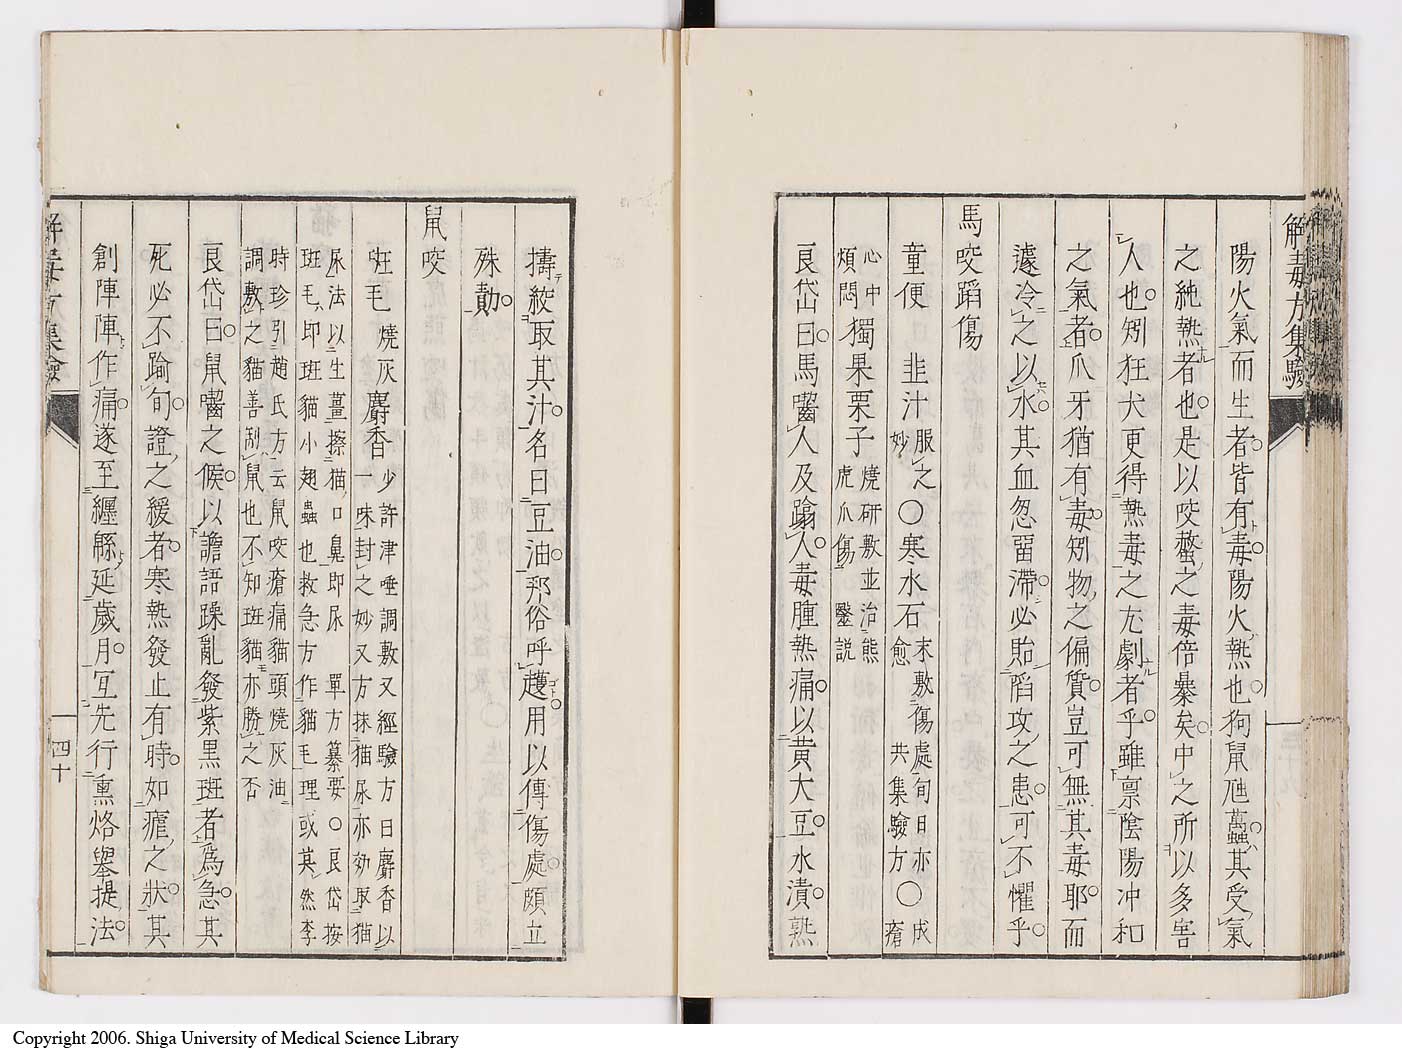 解毒方集驗
陽火氣而生者皆有毒陽火熱也狗鼠虺蠆其受氣
之純熱者也是以咬螫之毒倍暴矣中之所以多害
人也矧狂犬更得熱毒之尤劇者乎雖禀陰陽冲和
之氣者爪牙猶有毒矧物之偏質豈可無其毒耶而
遽冷之以水其血忽畱滯必貽陷攻之患可不懼乎
馬咬蹈傷
童便 韭汁服之妙○寒水石末敷傷處旬日亦愈共集驗方○成瘡
心中煩悶獨果栗子燒研敷並治熊虎爪傷 毉說
艮岱曰馬嚙人及踰人毒腫熱痛以黃大豆水漬熟
三十九
擣絞取其汁名曰豆油邦俗呼用以傅傷處頗立
殊勛
鼠咬
猫毛 燒灰麝香少許津唾調敷又經驗方曰麝香以
一味封之妙又方抹猫尿亦効取猫
尿法以生薑擦猫口鼻即尿 單方纂要○艮岱按
班毛即班貓小翅蟲也救急方作貓毛理或其然李
時珍引趙氏方云鼠咬瘡痛貓頭燒灰油
調敷之貓善刮鼠也不知班貓亦勝之否
艮岱曰鼠嚙之候以譫語躁亂發紫黑班者為急其
死必不踰旬證之緩者寒熱發止有時如瘧之狀其
創陣陣作痛遂至纏緜延歲月宜先行熏烙舉提法
解毒方集驗
四十
Copyright 2006. Shiga University of Medical Science Library